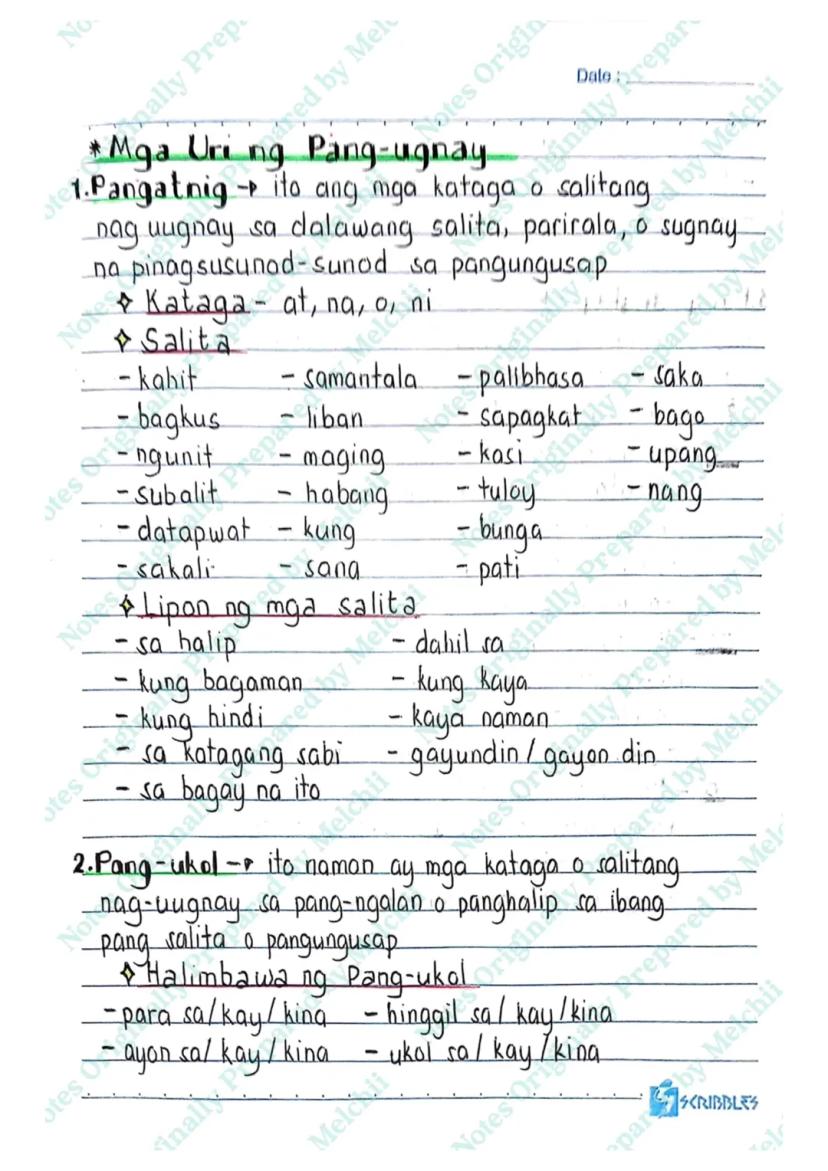 Date :
* Mga Uri ng Pang-ugnay
1.Pangatnig → ito ang mga kataga o salitang
nag uugnay sa dalawang salita, parirala, o sugnay
na pinagsusunod-sunod sa pangungusap
Kataga - at, na, o, ni
Salita
- kahit - samantala - palibhasa - saka
- bagkus - liban - sapagkat - bago
- ngunit - maging - kasi - upang
- subalit - habang - tuloy - nang
- datapwat - kung - bunga
- sakali - sana - pati
Lipon ng mga salita
- sa halip - dahil sa
- kung bagaman - kung kaya
- kung hindi - kaya naman
- sa katagang sabi - gayundin / gayon din
- sa bagay na ito
2.Pang-ukol → ito naman ay mga kataga o salitang
nag-uugnay sa pang-ngalan o panghalip sa ibang
pang salita o pangungusap
Halimbawa ng Pang-ukol
- para sa/kay/kina - hinggil sa/kay/kina
- ayon sa/kay/kina - ukol sa/kay/kina
SCRIBBLES
Notes Originally Prepared by Melchii